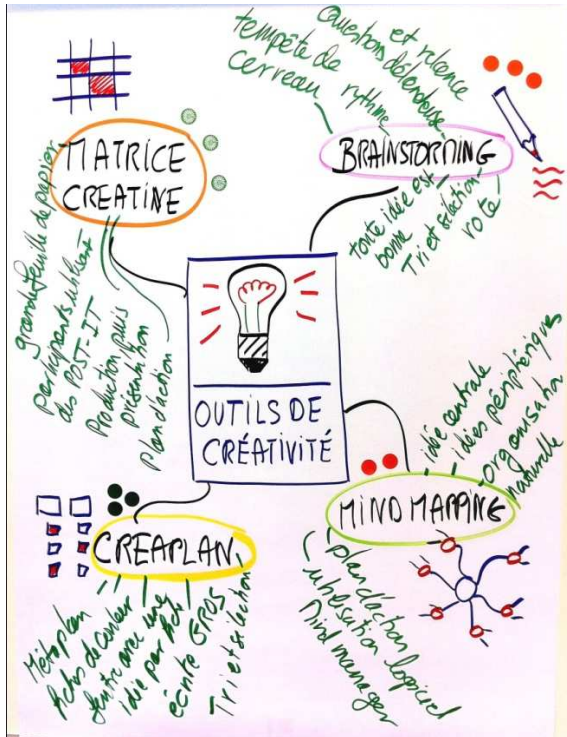 OUTILS DE
CRÉATIVITÉ
MATRICE
CREATINE
grande feuille de papier
participants utilisent
des POST-IT
Production puis
présentation
plan d'action
BRAINSTORMING
tempête de
cerveau
rythme
question défendeuse
et relance
toute idée est
bonne
Tri et sélection
vote
MIND MAPPING
idée centrale
idées périphériques
organisation
naturelle
plan d'action
utilisation logiciel
Mind manager
CREAPLAN
Métaplan
fiches de couleur
feutre avec une
idée par fiche
écrite GROS
Tri et sélection